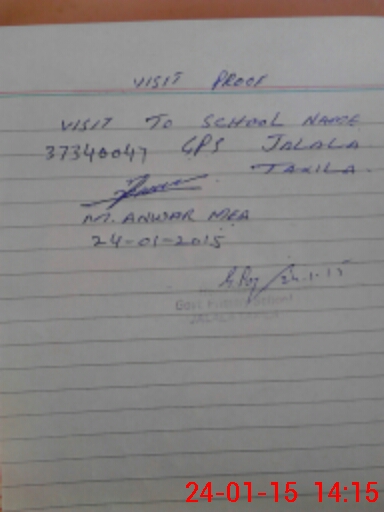 VISIT PROOF
VISIT TO SCHOOL NAME
37340047 GPS JALALA
TAXILA.
M. ANWAR MEA
24-01-2015
24.1.15
Govt
24-01-15 14:15